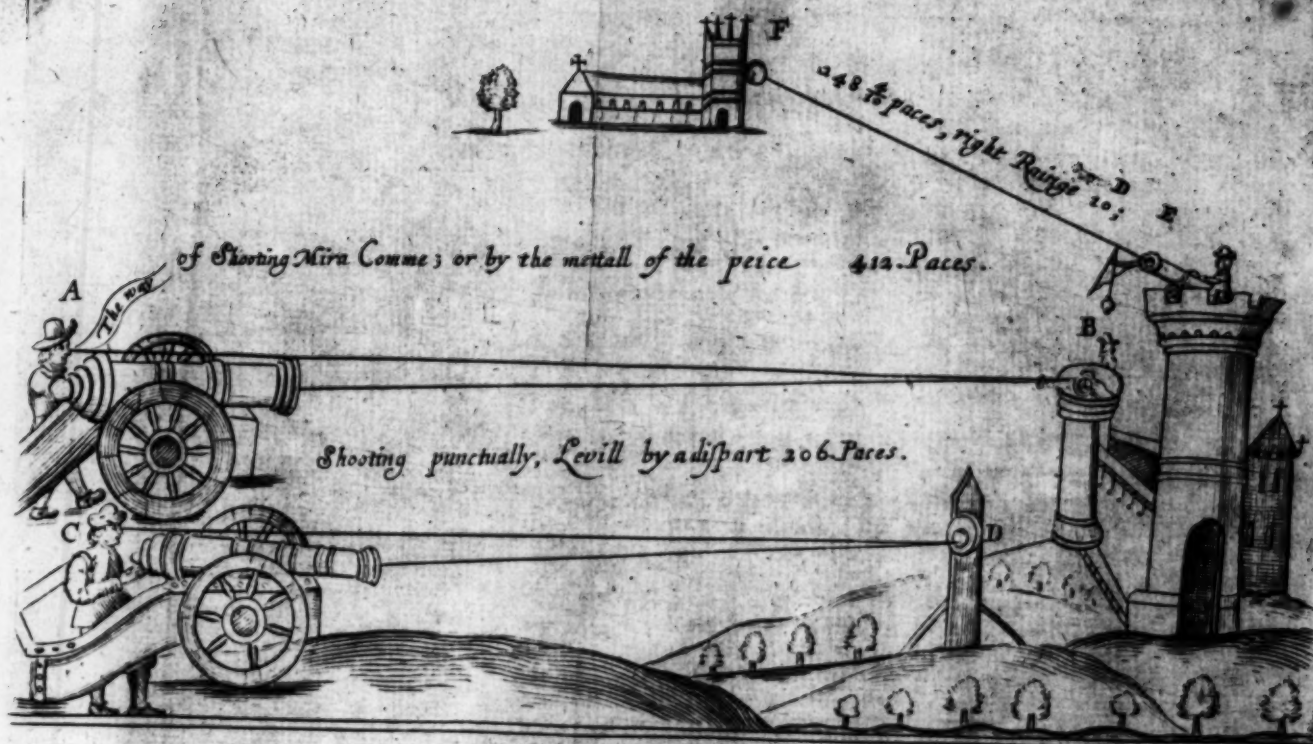 F
248 4/10 paces, right Rainge
D
E
A
The way
of Shooting Mira Comme; or by the mettall of the peice 412.Paces.
B
Shooting punctually, Levill by a diſpart 206.Paces.
C
D